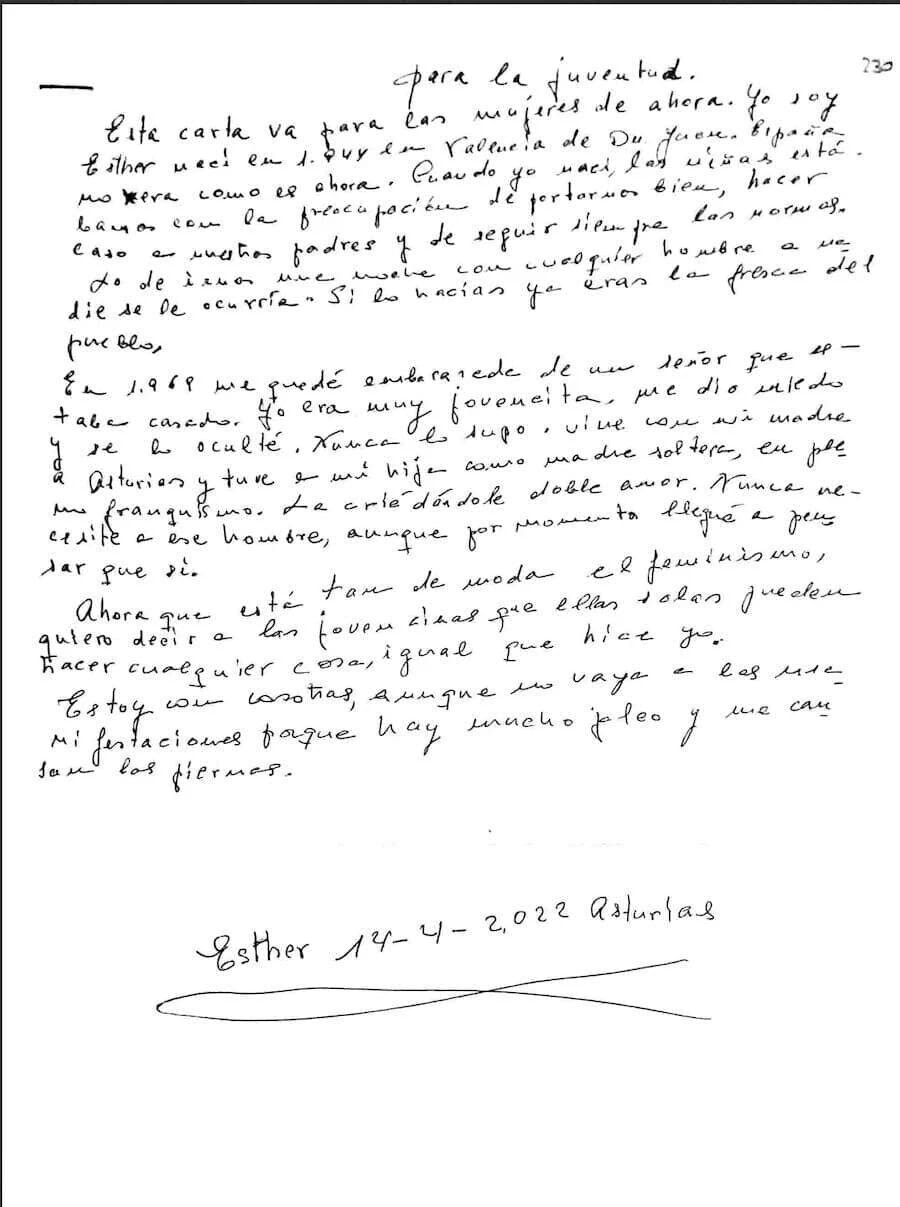 230
para la juventud.
Esta carta va para las mujeres de ahora. Yo soy
Esther nací en 1.944 en Valencia de Dn. Juan. España
no era como es ahora. Cuando yo nací, las niñas está-
bamos con la preocupación de portarnos bien, hacer
caso a nuestros padres y de seguir siempre las normas.
Lo de irnos una noche con cualquier hombre a na
die se le ocurría. Si lo hacías ya eras la fresca del
pueblo,
En 1.969 me quedé embarazada de un señor que es-
taba casado. Yo era muy jovencita, me dio miedo
y se lo oculté. Nunca lo supo, vine con mi madre
a Asturias y tuve a mi hija como madre soltera, en ple
no franquismo. La crié dándole doble amor. Nunca ne-
cesité a ese hombre, aunque por momento llegué a pen
sar que sí.
Ahora que está tan de moda el feminismo,
quiero decir a las jovencinas que ellas solas pueden
hacer cualquier cosa, igual que hice yo.
Estoy con vosotras, aunque no vaya a las ma
nifestaciones porque hay mucho jaleo y me can
san las piernas.
Esther 14-4-2,022 Asturias